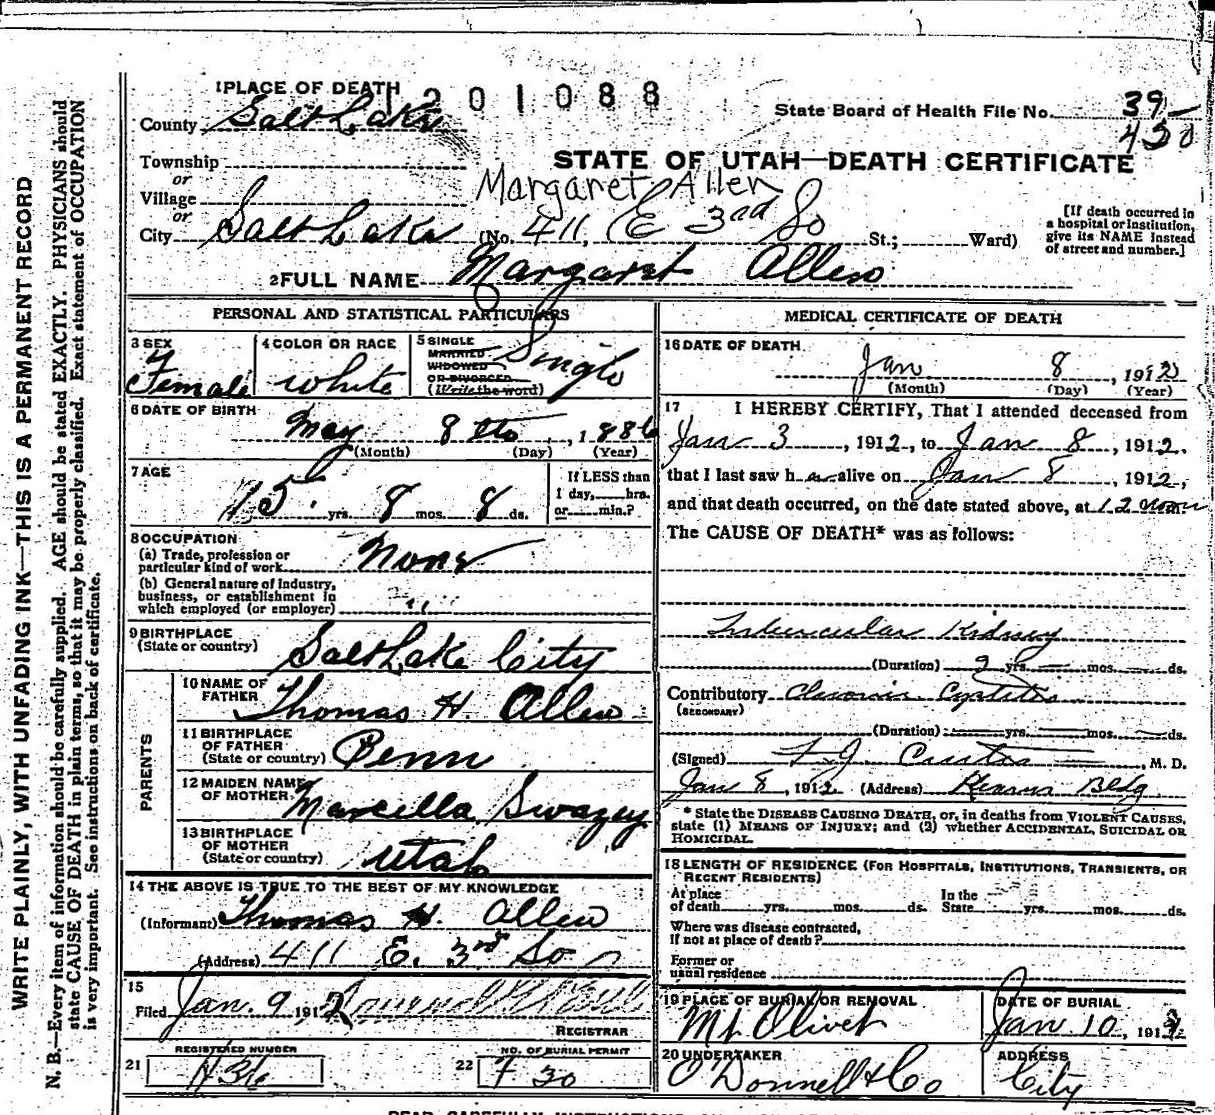 WRITE PLAINLY, WITH UNFADING INK—THIS IS A PERMANENT RECORD
N. B.—Every item of information should be carefully supplied. AGE should be stated EXACTLY. PHYSICIANS should
state CAUSE OF DEATH in plain terms, so that it may be properly classified. Exact statement of OCCUPATION
is very important. See instructions on back of certificate.
1 PLACE OF DEATH
201088
State Board of Health File No. 39
420
County Salt Lake
Township
or
Village
or
STATE OF UTAH—DEATH CERTIFICATE
Margaret Allen
City Salt Lake (No. 411, E 3rd So St.; Ward)
[If death occurred in
a hospital or institution,
give its NAME instead
of street and number.]
2 FULL NAME Margaret Allen
PERSONAL AND STATISTICAL PARTICULARS
3 SEX
Female
4 COLOR OR RACE
white
5 SINGLE
MARRIED
WIDOWED
OR DIVORCED
(Write the word)
Single
6 DATE OF BIRTH
May 8th, 1886
(Month) (Day) (Year)
7 AGE
15 yrs. 8 mos. 8 ds.
If LESS than
1 day, hrs.
or min.?
8 OCCUPATION
(a) Trade, profession or
particular kind of work None
(b) General nature of industry,
business, or establishment in
which employed (or employer) "
9 BIRTHPLACE
(State or country) Salt Lake City
PARENTS
10 NAME OF
FATHER Thomas H. Allen
11 BIRTHPLACE
OF FATHER
(State or country) Penn
12 MAIDEN NAME
OF MOTHER Marcella Swazey
13 BIRTHPLACE
OF MOTHER
(State or country) Utah
14 THE ABOVE IS TRUE TO THE BEST OF MY KNOWLEDGE
(Informant) Thomas H. Allen
(Address) 411 E. 3rd So
15
Filed Jan. 9 1912
REGISTRAR
21 REGISTERED NUMBER
H36
22 NO. OF BURIAL PERMIT
F 30
MEDICAL CERTIFICATE OF DEATH
16 DATE OF DEATH
Jan 8, 1912
(Month) (Day) (Year)
17 I HEREBY CERTIFY, That I attended deceased from
Jan 3, 1912, to Jan 8, 1912.
that I last saw her alive on Jan 8, 1912,
and that death occurred, on the date stated above, at 12 noon
The CAUSE OF DEATH* was as follows:
Tubercular Kidney
(Duration) 2 yrs. mos. ds.
Contributory Chronic Cystitis
(SECONDARY)
(Duration) yrs. mos. ds.
(Signed) F J Curtis, M. D.
Jan 8, 1912 (Address) Kearns Bldg.
* State the DISEASE CAUSING DEATH, or, in deaths from VIOLENT CAUSES,
state (1) MEANS OF INJURY; and (2) whether ACCIDENTAL, SUICIDAL OR
HOMICIDAL.
18 LENGTH OF RESIDENCE (FOR HOSPITALS, INSTITUTIONS, TRANSIENTS, OR
RECENT RESIDENTS)
At place
of death yrs. mos. ds. In the
State yrs. mos. ds.
Where was disease contracted,
if not at place of death?
Former or
usual residence
19 PLACE OF BURIAL OR REMOVAL
Mt. Olivet
DATE OF BURIAL
Jan 10, 1912
20 UNDERTAKER
O'Donnell & Co
ADDRESS
City